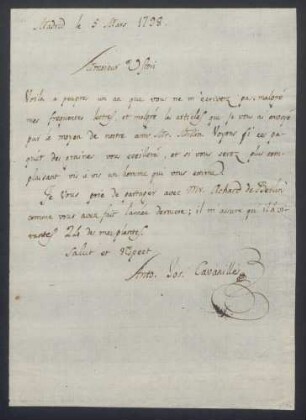 Madrid le 5 Mars 1798.
Monsieur Usteri
Voila a peupres un an que vous ne m'ecrivez pas, malgré
mes frequentes lettres et malgré la articles que je vous ai envoyé
par le moyen de notre ami Mr. Voyons si ce pa-
quet des graines vous eveillera, et si vous serez plus com-
plaisant vis a vis un homme qui vous aime.
Je vous prie de partager avec Mr. Achard de Berlin
comme vous avez fait l'annee derniere; il m'assure qu'il
24 de mes plantes.
Salut et respect
Anto. Jos. Cavanilles